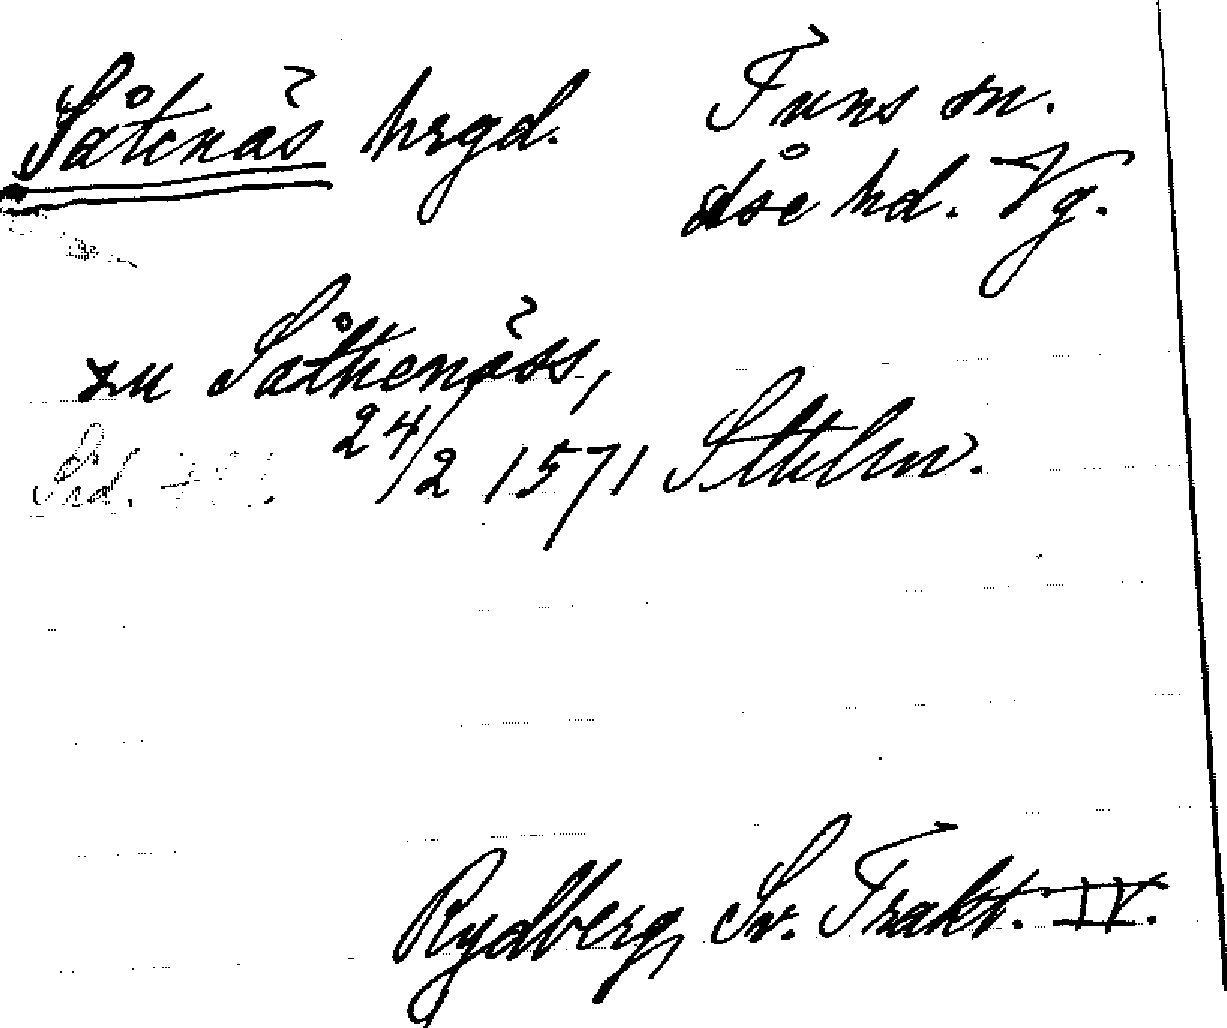 Såtenäs hrgd. Tuns sn.
Åse hd. Vg.
zu Såthenäss,
24/2 1571 Sthlm.
Rydberg, Sv. Trakt. IV.